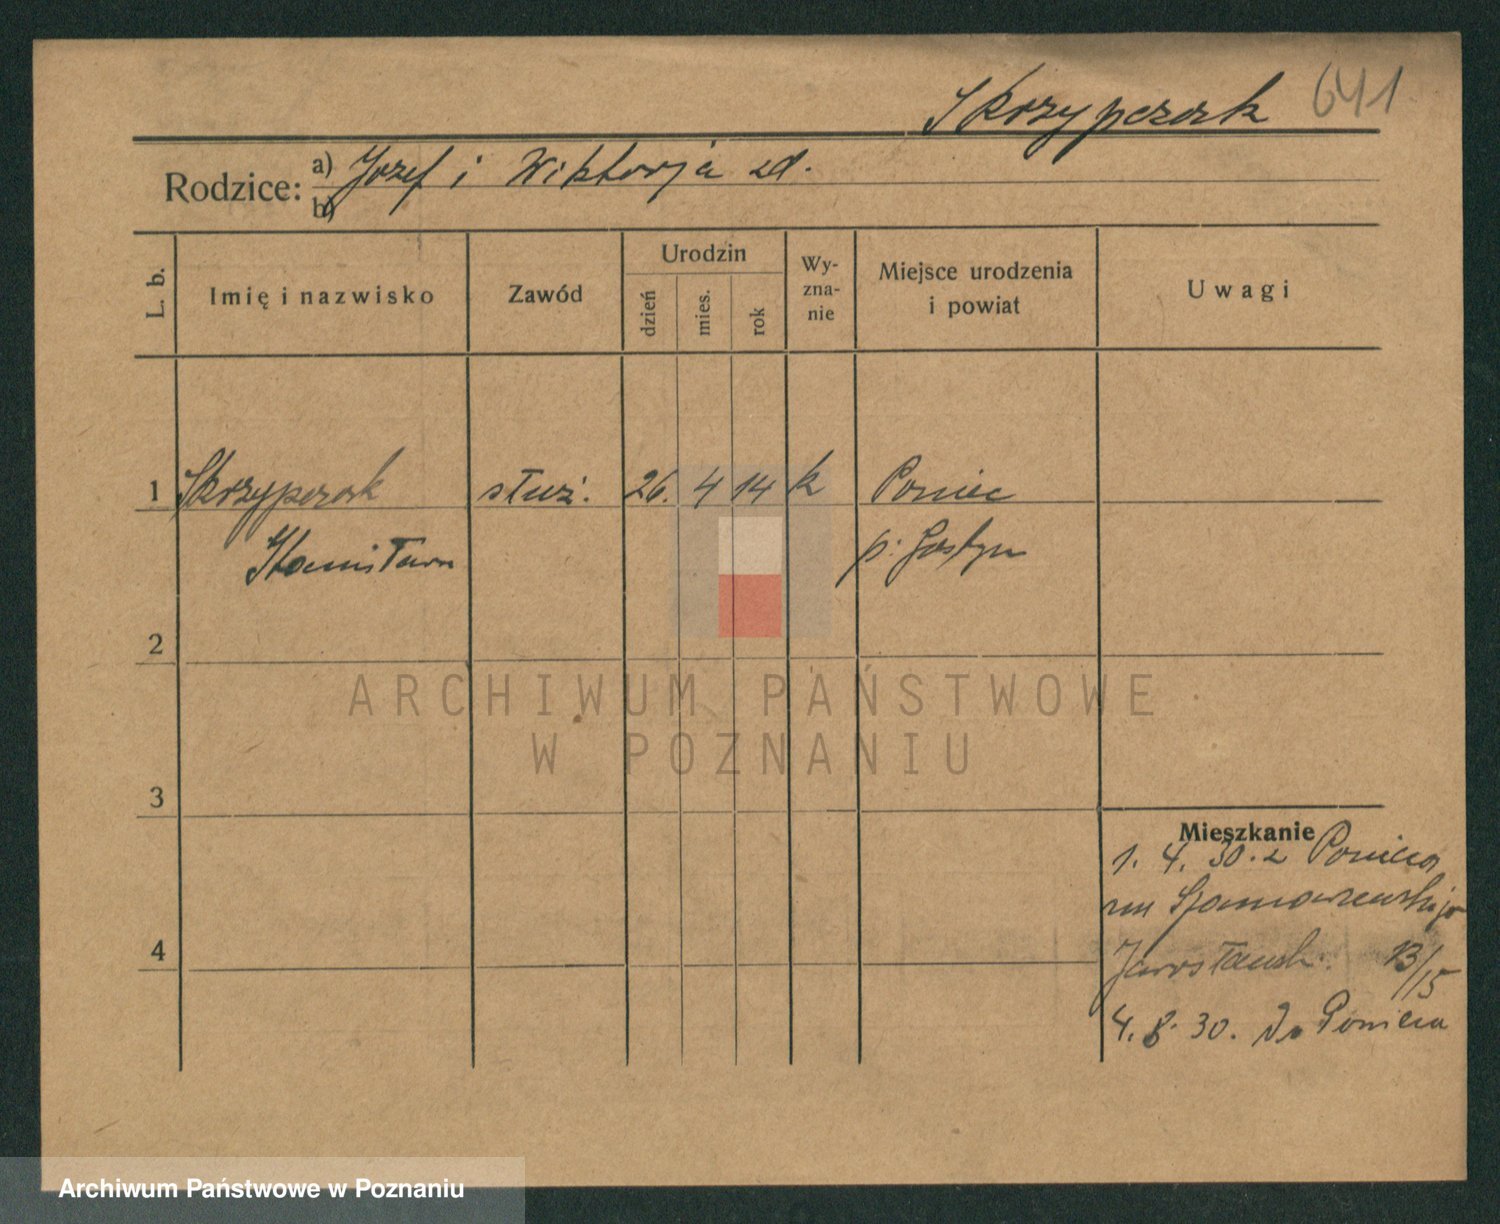 Skrzypczak 641
Rodzice: a) Józef i Wiktorja zd.
b)
L. b. Imię i nazwisko Zawód Urodzin dzień mies. rok Wy-zna-nie Miejsce urodzenia i powiat Uwagi
1 Skrzypczak służ. 26. 4 14 k Poniec
Stanisława p. Gostyn
2
ARCHIWUM PAŃSTWOWE
W POZNANIU
3
Mieszkanie
1. 4. 30. z Ponieca
4
13/15
4. 8. 30. Do Ponieca
Archiwum Państwowe w Poznaniu